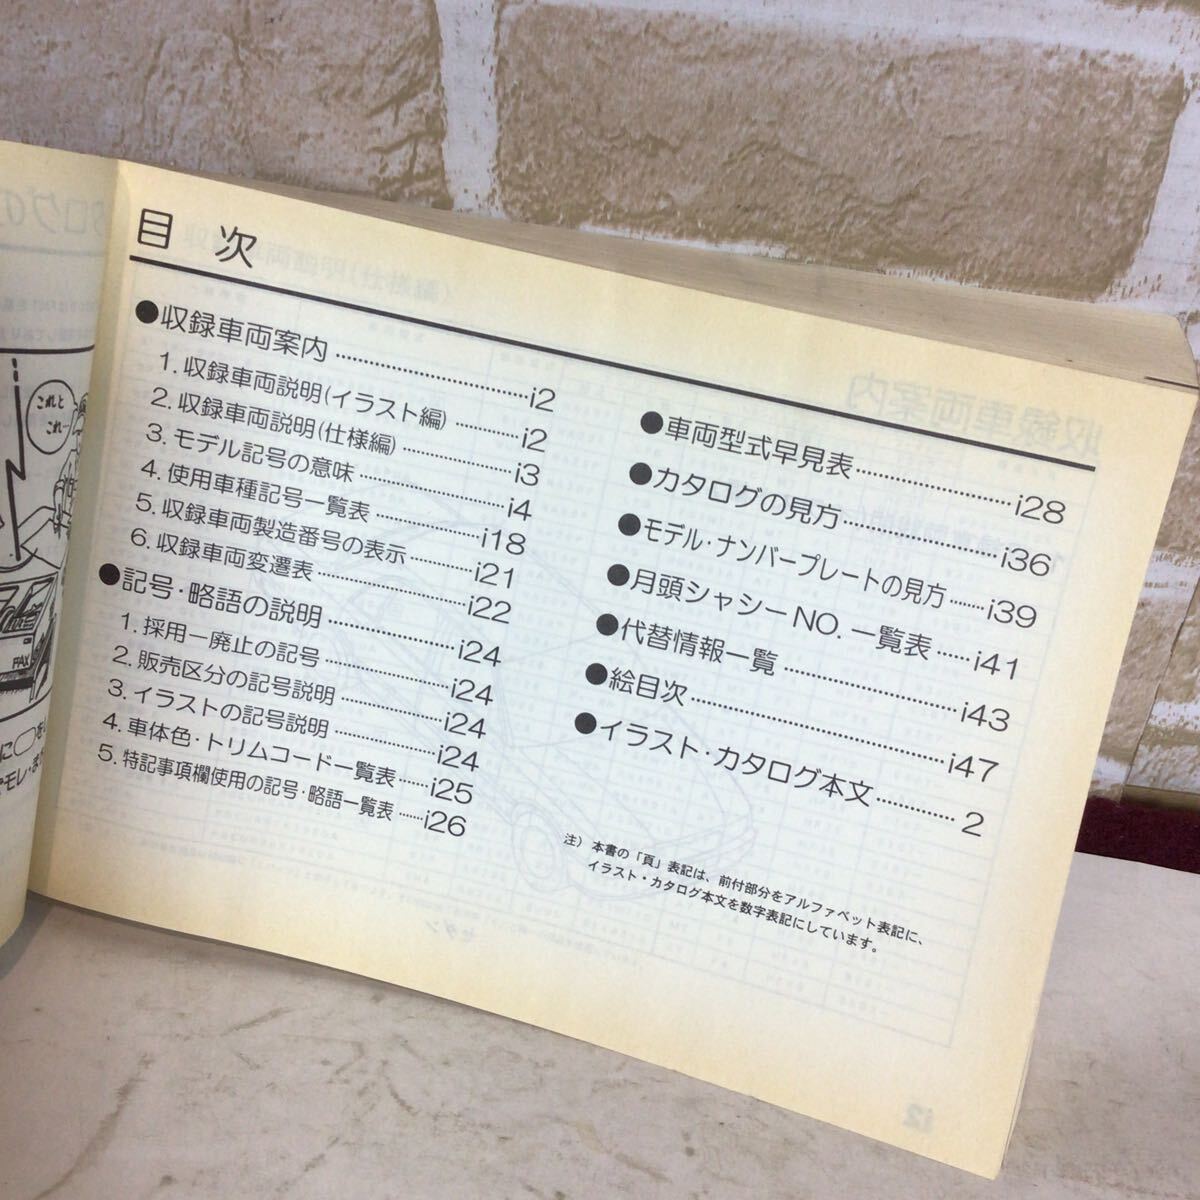 目次
●収録車両案内……………………i2
1. 収録車両説明(イラスト編)…………i2
2. 収録車両説明(仕様編)……………i3
3. モデル記号の意味…………………i4
4. 使用車種記号一覧表……………i18
5. 収録車両製造番号の表示………i21
6. 収録車両変遷表…………………i22
●記号・略語の説明………………i24
1. 採用ー廃止の記号………………i24
2. 販売区分の記号説明……………i24
3. イラストの記号説明………………i24
4. 車体色・トリムコード一覧表……i25
5. 特記事項欄使用の記号・略語一覧表……i26
●車両型式早見表…………………i28
●カタログの見方…………………i36
●モデル・ナンバープレートの見方……i39
●月頭シャシーNO. 一覧表……i41
●代替情報一覧……………………i43
●絵目次……………………………i47
●イラスト・カタログ本文…………2
注) 本書の「頁」表記は、前付部分をアルファベット表記に、
イラスト・カタログ本文を数字表記にしています。
これと
これー
FAX